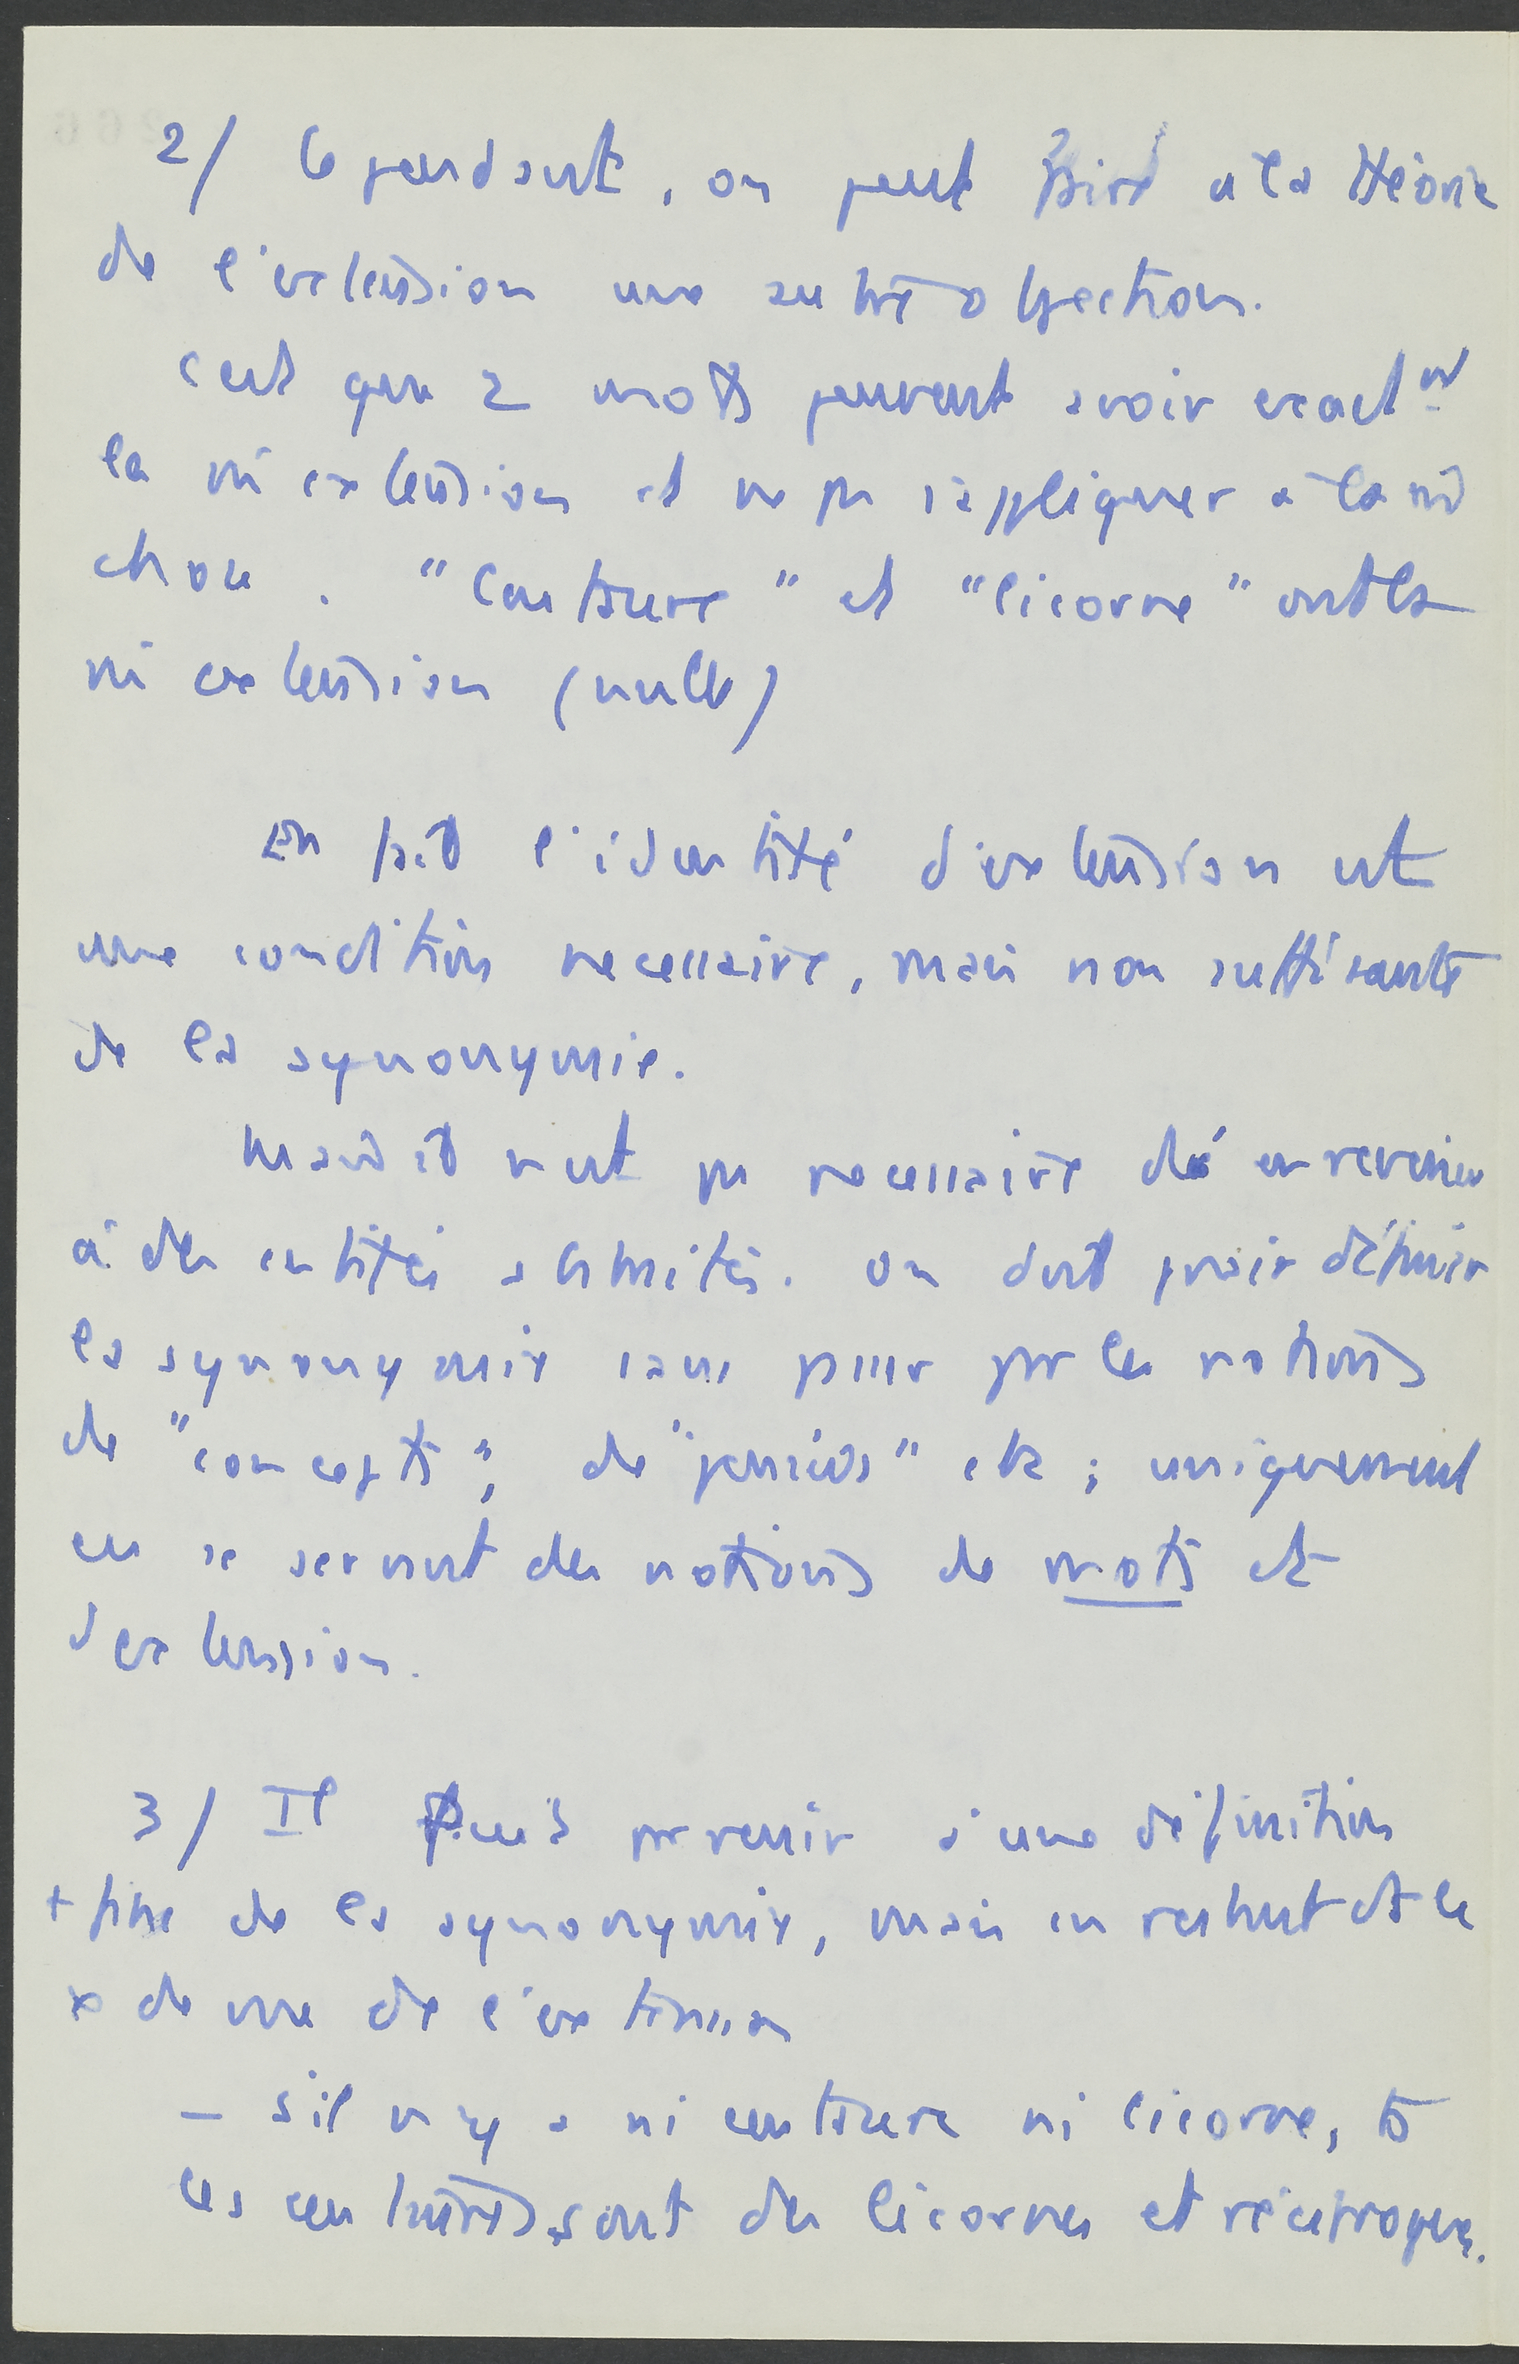 2/ Cependant, on peut faire à la théorie
de l'extension une autre objection.
c'est que 2 mots peuvent avoir exactmt
la mê extension et ne pas s'appliquer à la mê
chose. "Centaure" et "licorne" ont la
mê extension (nulle)
En fait l'identité d'extension est
une condition necessaire, mais non suffisante
de la synonymie.
Mais il n'est pas necessaire de en revenir
à des entités abstraites. On doit pvoir définir
la synonymie sans passer par les notions
de "concepts", de "pensées" etc ; uniquement
en se servant des notions de mots et
d'extension.
3/ Il faut parvenir à une définition
+ fine de la synonymie, mais en restant ds le
pt de vue de l'extension
- s'il n'y a ni centaure ni licorne, ts
les centaures sont des licornes et réciproqut.